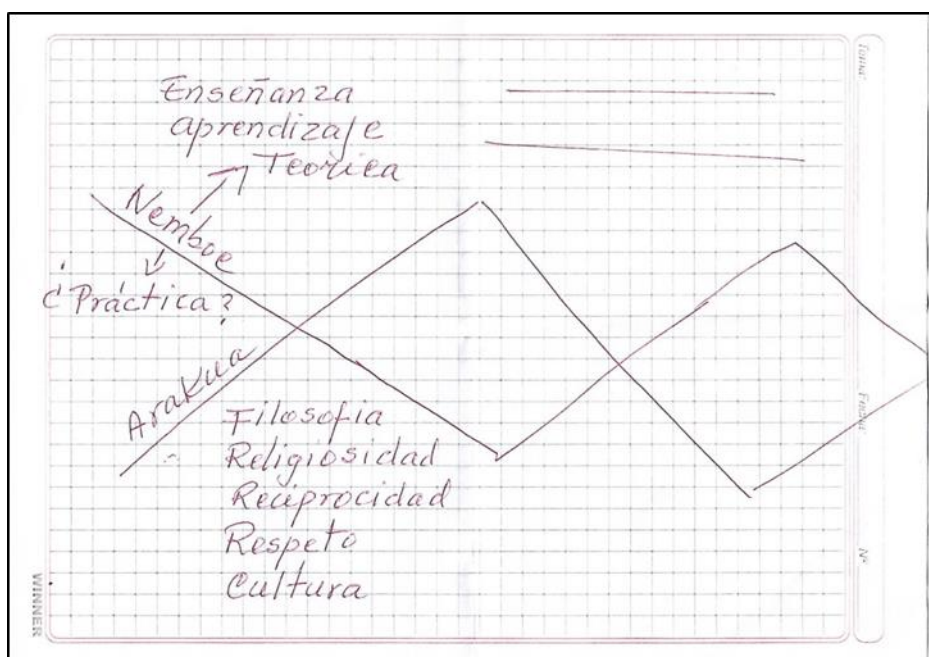 Enseñanza
aprendizaje
Teórica
Nemboe
¿Práctica?
Arakua
Filosofia
Religiosidad
Reciprocidad
Respeto
Cultura
WINNER
Fecha:
Nº